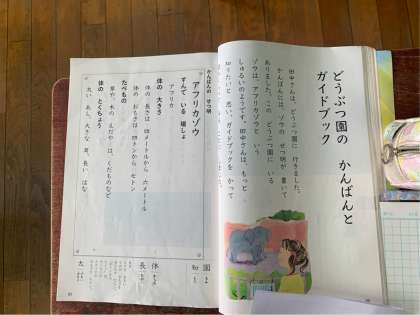 どうぶつ園の かんばんと
ガイドブック
田中さんは、どうぶつ園に 行きました。
かんばんには、ゾウの せつ明が 書いて
ありました。この どうぶつ園に いる
ゾウは、アフリカゾウと いう
しゅるいのようです。田中さんは、もっと
知りたいと 思い、ガイドブックを かって
かんばんの せつ明
アフリカゾウ
すんで いる 場しょ
アフリカ
体の 大きさ
体の 長さは 六メートルから 七メートル
体の おもさは 四トンから 七トン
たべもの
草や、木の えだや は、くだものなど
体の とくちょう
太い あし、大きな 耳、長い はな
園
知
体
長
太